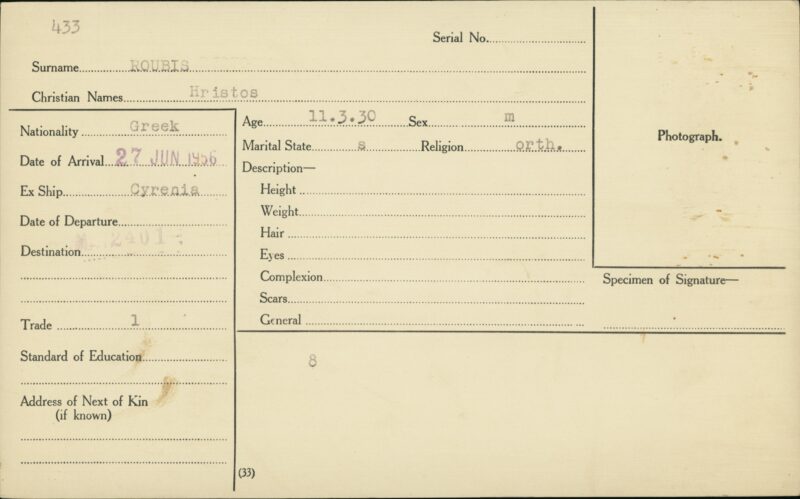 433
Serial No.
Surname ROUBIS
Christian Names Hristos
Nationality Greek
Date of Arrival 27 JUN 1956
Ex Ship Cyrenia
Date of Departure
2401
Destination
Trade 1
Standard of Education
Address of Next of Kin
(if known)
Age 11.3.30 Sex m
Marital State s Religion orth.
Description—
Height
Weight
Hair
Eyes
Complexion
Scars
General
8
(33)
Photograph.
Specimen of Signature—